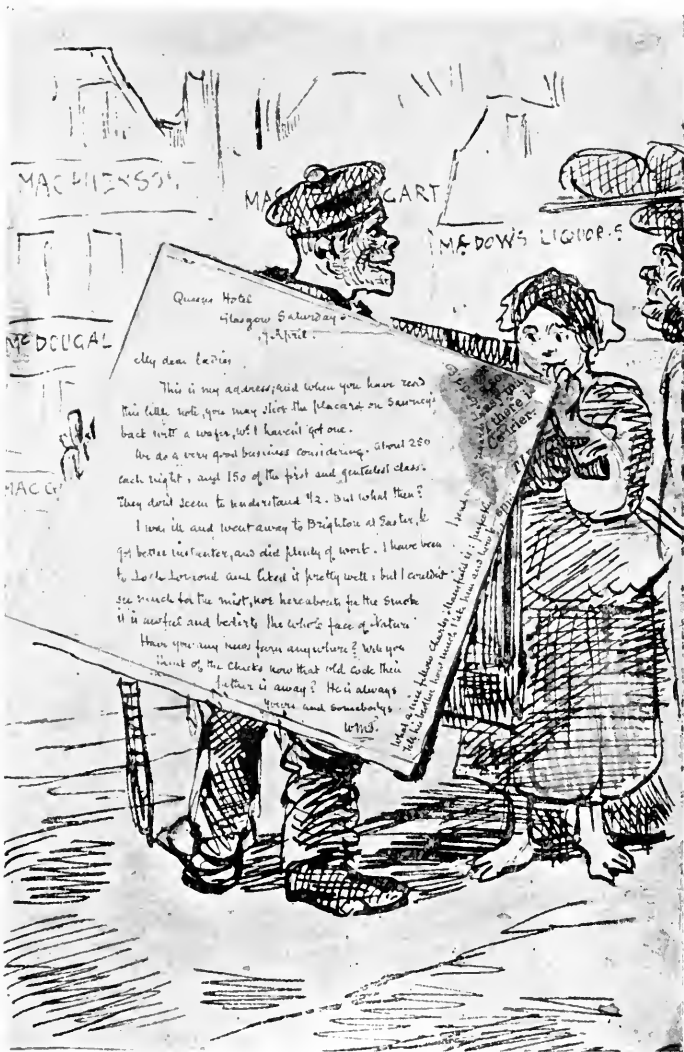 MAC
MAC CART
McDOWS LIQUORS
McDOUGAL
MAC G
Queens Hotel
Glasgow Saturday
April.
My dear Ladies
This is my address; and when you have read
this little note, you may stick the placard on Sawney's
back with a wafer, wh. I havent got one.
We do a very good business considering. About 250
each night, and 150 of the first and genteelest class.
They dont seem to understand 1/2. But what then?
I was ill and went away to Brighton at Easter, &
got better instanter, and did plenty of work. I have been
to Loch Lomond and liked it pretty well: but I couldnt
see much for the mist, nor hereabouts for the Smoke
it is awful and bedirts the whole face of Nature
Have you any news from anywhere? Will you
think of the Chicks now that old Cock their
father is away? He is always
yours and somebodys
WMT.
What a nice fellow Charles
let his brother how much I like him and how
there is
Courier.